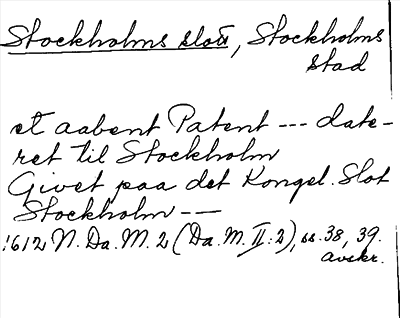 Stockholms slott, Stockholms
stad
et aabent Patent --- date-
ret til Stockholm
Givet paa det Kongel. Slot
Stockholm ---
1612 N. Da. M. 2 (Da. M. II: 2), ss. 38, 39.
avskr.